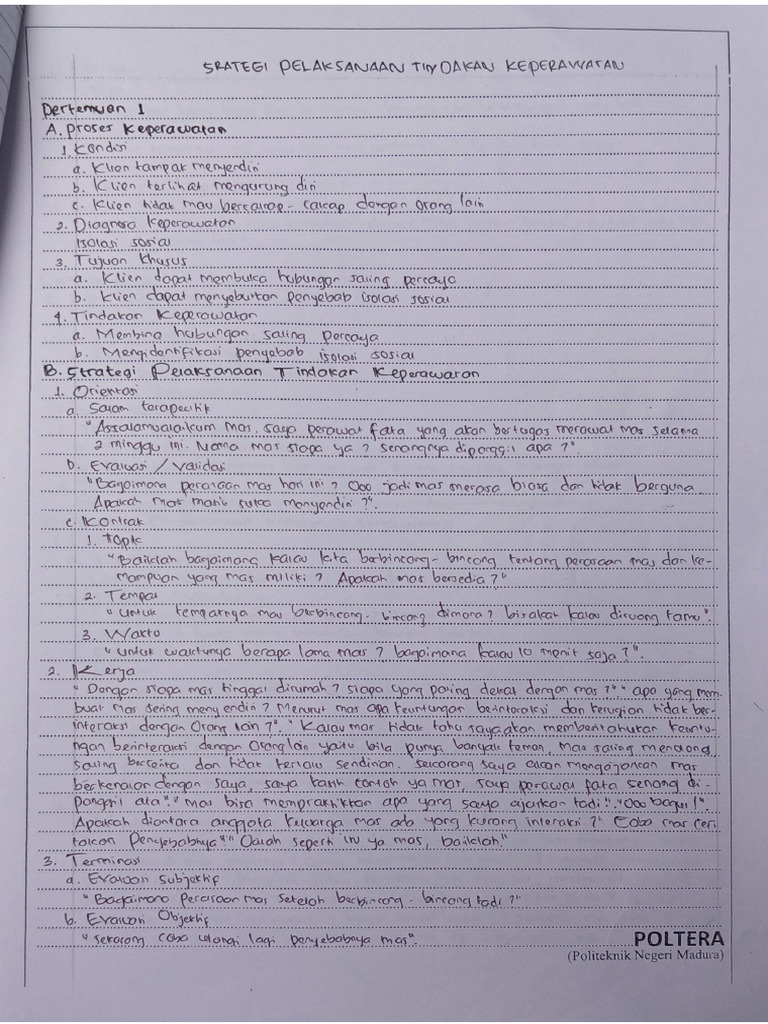 SRATEGI PELAKSANAAN TINDAKAN KEPERAWATAN
Pertemuan 1
A. Proses Keperawatan
1. Kondisi
a. Klien tampak menyendiri
b. Klien terlihat mengurung diri
c. Klien tidak mau bercakap-cakap dengan orang lain
2. Diagnosa Keperawatan
Isolasi sosial
3. Tujuan Khusus
a. Klien dapat membuka hubungan saling percaya
b. Klien dapat menyebutkan penyebab isolasi sosial
4. Tindakan Keperawatan
a. Membina hubungan saling percaya
b. Mengidentifikasi penyebab isolasi sosial
B. Strategi Pelaksanaan Tindakan Keperawatan
1. Orientasi
a. Salam terapeutik
"Assalamualaikum mas, saya perawat fata yang akan bertugas merawat mas selama
2 minggu ini. Nama mas siapa ya? senangnya dipanggil apa?"
b. Evaluasi / validasi
"Bagaimana perasaan mas hari ini? Ooo jadi mas merasa bosa dan tidak berguna
Apakah mas masih suka menyendiri?".
c. Kontrak
1. Topic
"Baiklah bagaimana kalau kita berbincang-bincang tentang perasaan mas dan ke-
mampuan yang mas miliki? Apakah mas bersedia?"
2. Tempat
"untuk tempatnya mau berbincang-bincang dimana? bisakah kalau diruang tamu".
3. Waktu
"untuk waktunya berapa lama mas? bagaimana kalau 10 menit saja?".
2. Kerja
"Dengan siapa mas tinggal dirumah? siapa yang paling dekat dengan mas?" "apa yang mem-
buat mas sering menyendiri? Menurut mas apa keuntungan berinteraksi dan kerugian tidak ber-
interaksi dengan orang lain?". "Kalau mas tidak tahu saya akan memberitahukan keuntu-
ngan berinteraksi dengan orang lain yaitu bila punya banyak teman, mas saling menolong,
saling bercerita dan tidak terlalu sendirian. sekarang saya akan mengajarkan mas
berkenalan dengan saya, saya kasih contoh ya mas, saya perawat fata senang di-
panggil ata" "mas bisa mempraktikkan apa yang saya ajarkan tadi" "Ooo bagus!".
Apakah diantara anggota keluarga mas ada yang kurang interaksi?" Coba mas ceri
takan Penyebabnya" "Oalah seperti itu ya mas, baiklah."
3. Terminasi
a. Evaluasi subjektif
"Bagaimana perasaan mas setelah berbincang-bincang tadi?"
b. Evaluasi Objektif
"sekarang coba ulangi lagi penyebabnya mas".
POLTERA
(Politeknik Negeri Madura)